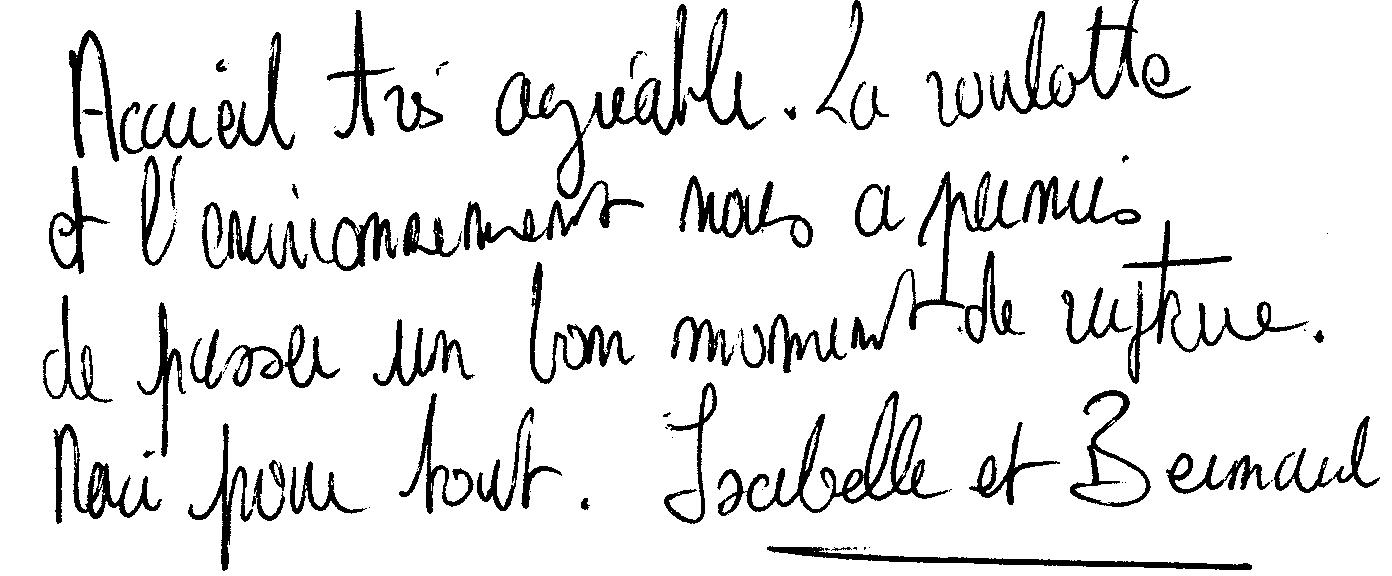 Accueil très agréable. La roulotte
et l'environnement nous a permis
de passer un bon moment de rupture.
Merci pour tout. Isabelle et Bernard